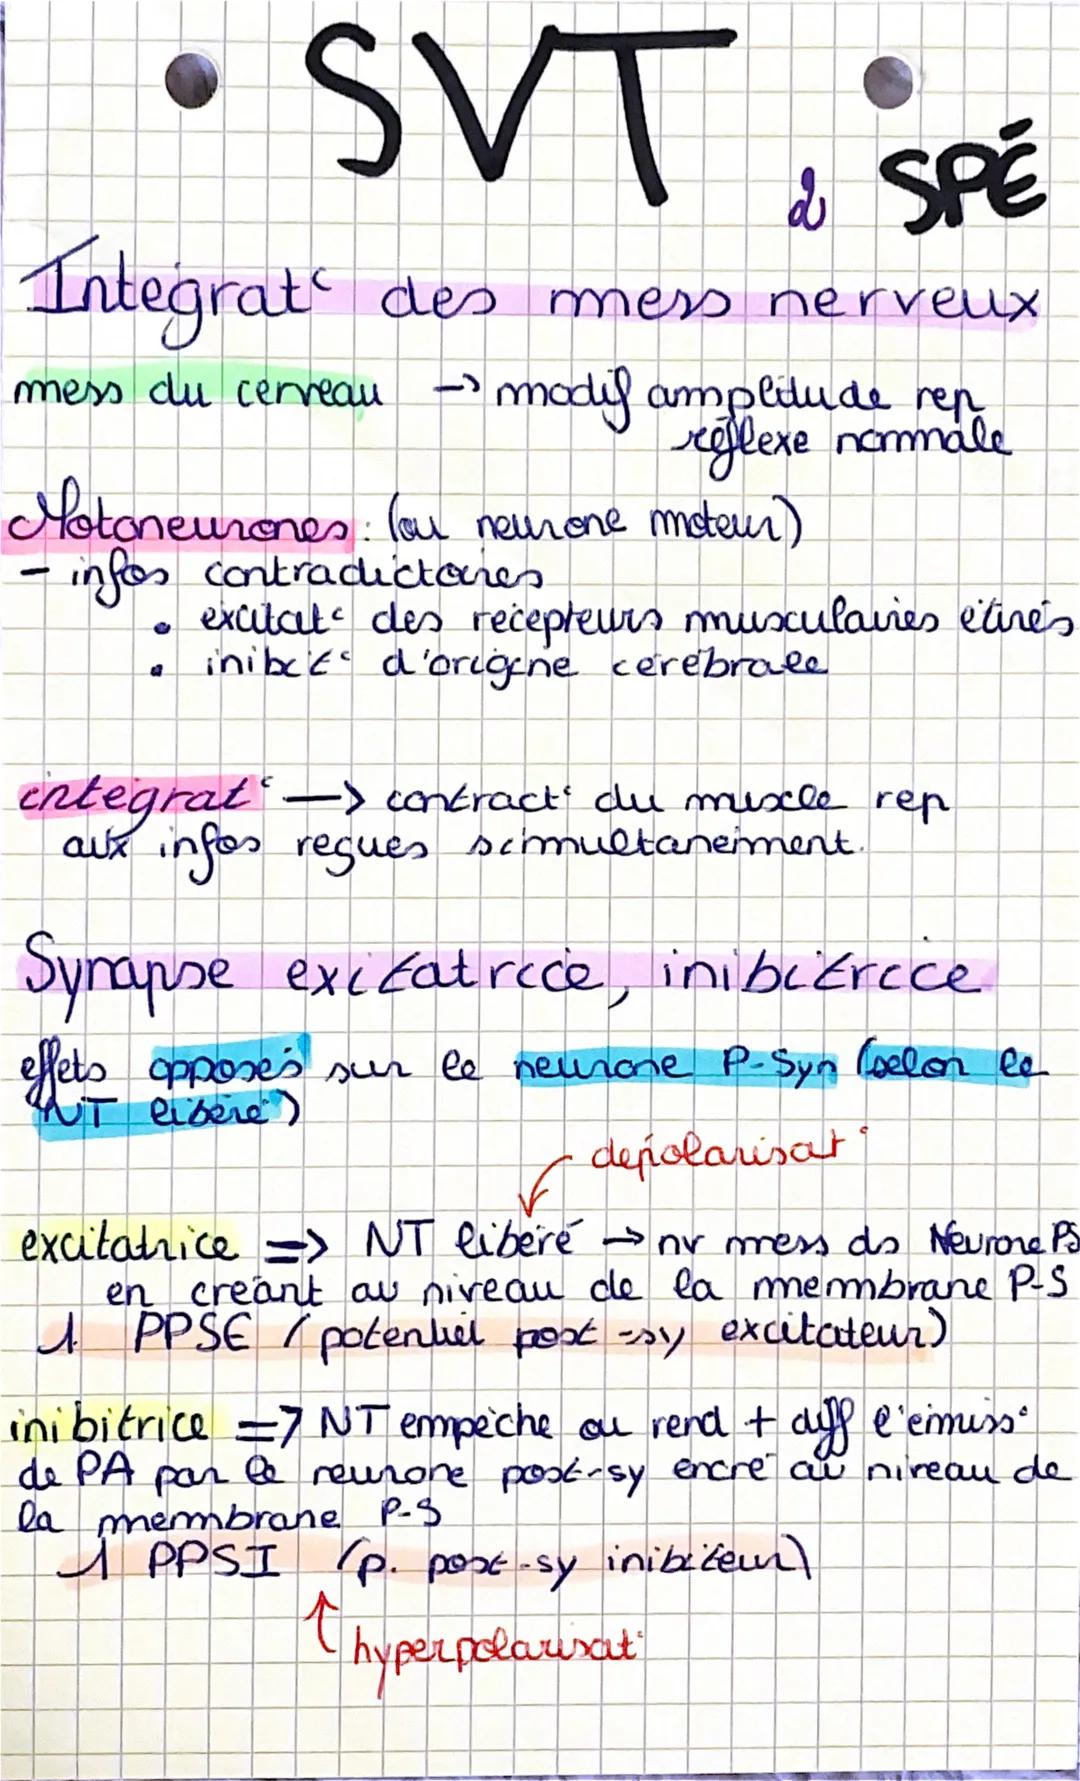 SVT
2 SPÉ
Intégrat° des mess nerveux
mess du cerveau → modif amplitude rep
réflexe normale
Motoneurones : (ou neurone moteur)
- infos contradictoires
• excitat° des récepteurs musculaires étirés
• inibit° d'origine cérébrale
intégrat° → contract° du muscle rep
aux infos reçues simultanément.
Synapse excitatrice, inibitrice
effets opposés sur le neurone P-Syn (selon le
NT libéré)
depolarisat°
excitatrice => NT libéré → nv mess ds Neurone PS
en créant au niveau de la membrane P-S
1 PPSE (potentiel post-sy excitateur)
inibitrice => NT empêche ou rend + diff l'émiss°
de PA par le neurone post-sy encré au niveau de
la membrane P-S
1 PPSI (p. post-sy inibiteur)
hyperpolarisat°